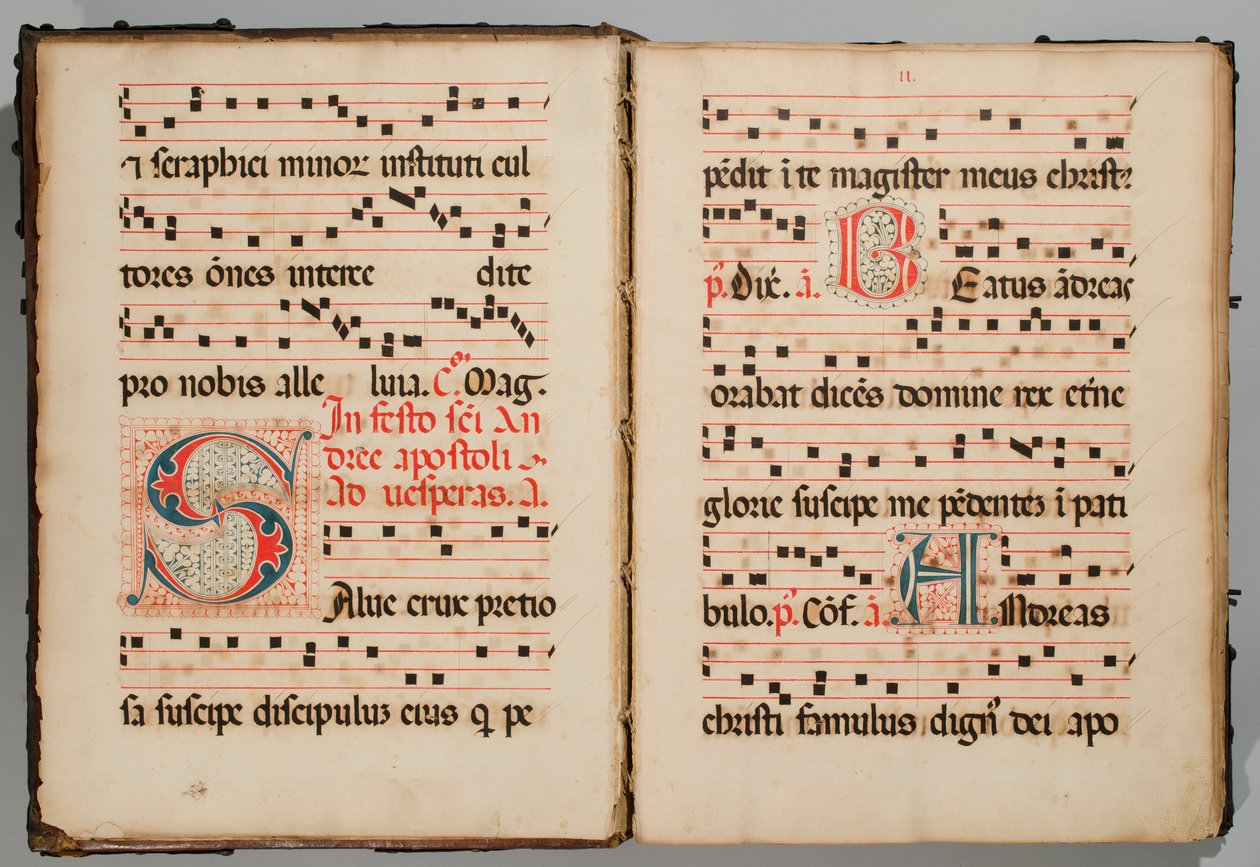 ⁊ seraphici minor instituti cul
tores õnes interce dite
pro nobis alle luia. Mag.
In festo sc̃i An
dree apostoli
Ad uesperas. A.
SAlue crux pretio
sa suscipe discipuluȝ eius q̃ pe
II.
pẽdit ĩ te magister meus christꝰ
p̃. Dix̃. ã. BEatus ãdreas
orabat dicẽs domine rex etr̃ne
glorie suscipe me pẽdenteȝ ĩ pati
bulo. p̃. Cõf. ã. ANdreas
christi famulus dign̉ dei apo